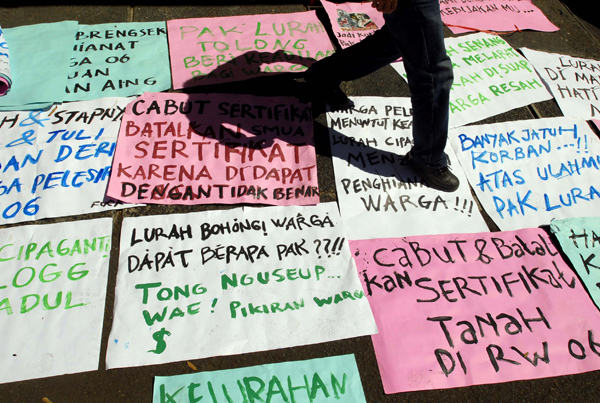 P.RENGSEK
HIANAT
GA 06
UAN
AN AING
PAK LURAH
TOLONG
BERI
BAGI WARGA
KEBIJAKAN MU...
SENANG
WARGA RESAH
LURAH
DI MA
HATI
& STAPNY
& TULI
DAN DERI
WARGA PELESIR
06
CABUT SERTIFIKA
BATALKAN SMUA
SERTIFIKAT
KARENA DI DAPAT
DENGAN TIDAK BENAR
WARGA PELE
MENUNTUT KE
LURAH CIPA
MEN
PENGHIAN
WARGA!!!
BANYAK JATUH
KORBAN...!!
ATAS ULAHMU
PAK LURA
CIPAGANTI
LOGG
ADUL
LURAH BOHONG! WARGA
DAPAT BERAPA PAK??!!
TONG NGUSEUP...
WAE! PIKIRAN WARG
$
CABUT & Batal
kan SERTIFIKAT
TANAH
DI RW 06
HA
KELURAHAN